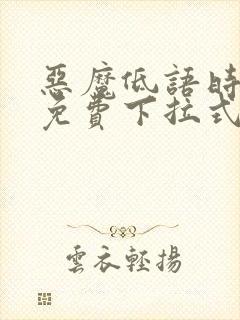 惡魔低語時
免費下拉式
雲衣輕揚